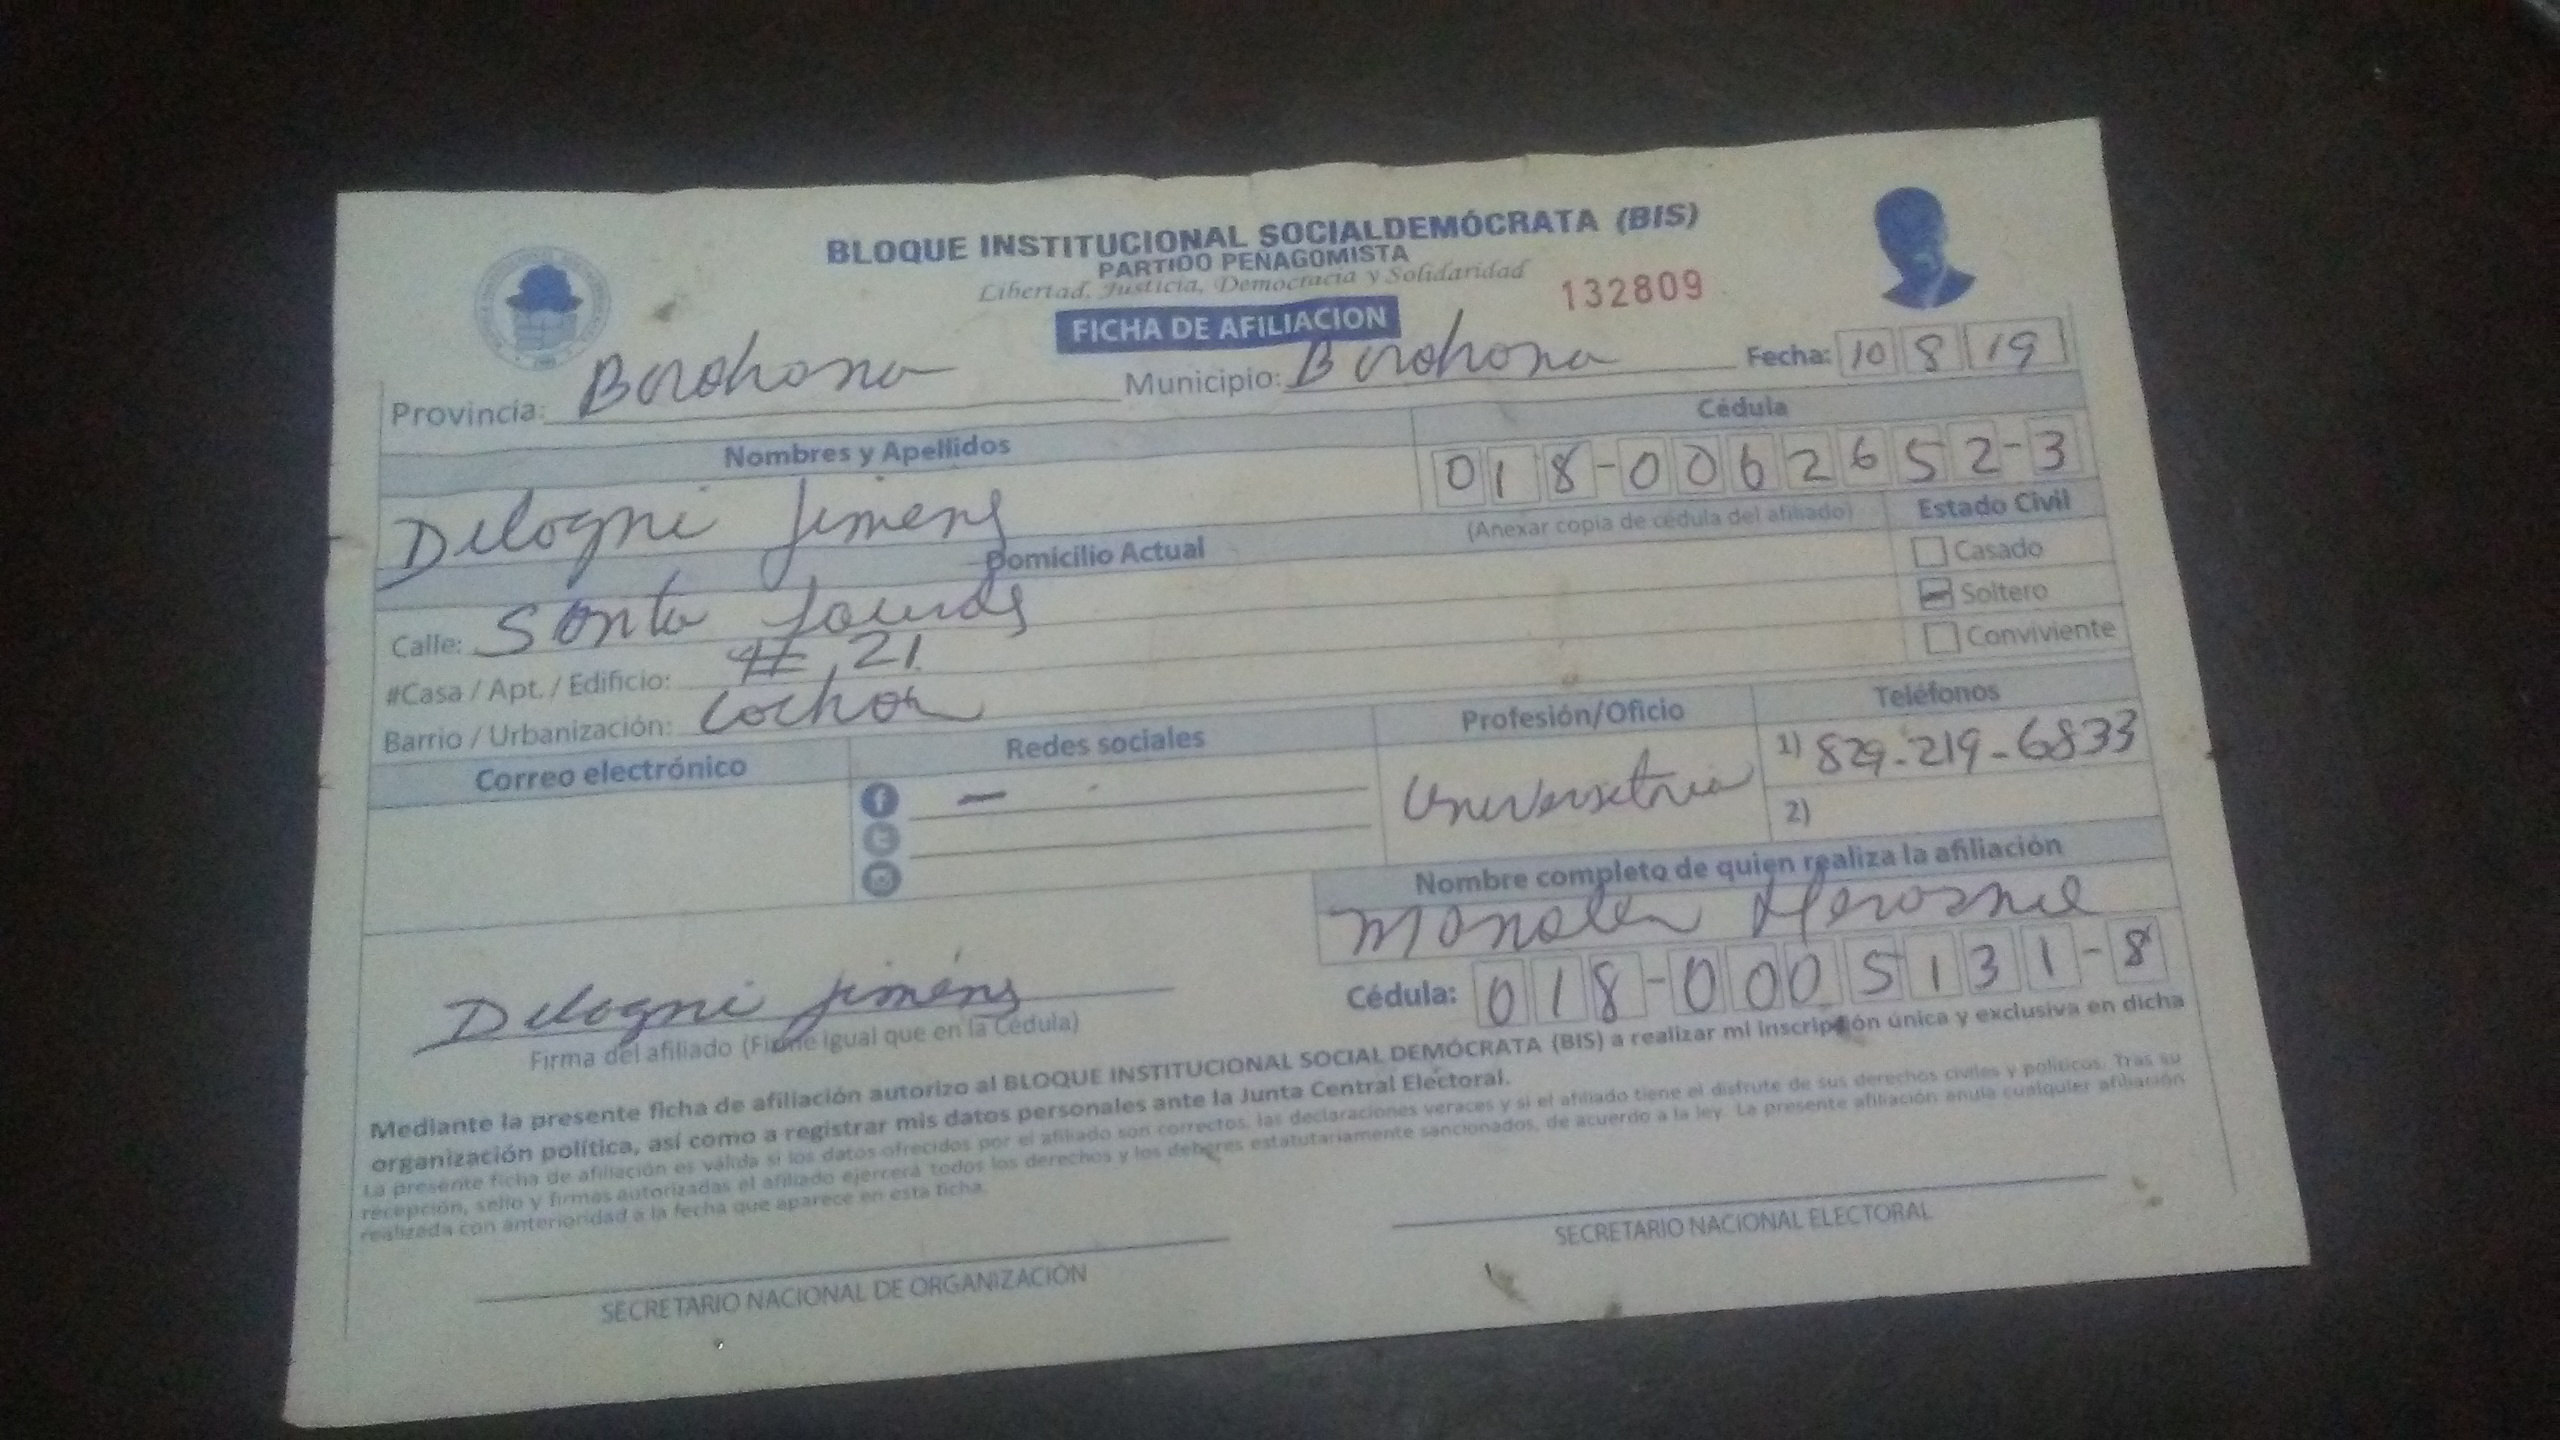 BLOQUE INSTITUCIONAL SOCIALDEMÓCRATA (BIS)
PARTIDO PEÑAGOMISTA
Libertad, Justicia, Democracia y Solidaridad
132809
FICHA DE AFILIACION
Provincia: Barahona Municipio: Barahona Fecha: 10 8 19
Nombres y Apellidos Cédula
018-0062652-3
Delogni Jiméns
(Anexar copia de cédula del afiliado) Estado Civil
Domicilio Actual
Casado
Calle: Santa Lourds Soltero
#Casa / Apt. / Edificio: # 21 Conviviente
Barrio / Urbanización:
Correo electrónico Redes sociales Profesión/Oficio Teléfonos
Universitria 1) 829-219-6833
2)
Nombre completo de quien realiza la afiliación
Cédula: 018-0005131-8
Delogni Jiméns
Firma del afiliado (Firme igual que en la Cédula)
Mediante la presente ficha de afiliación autorizo al BLOQUE INSTITUCIONAL SOCIAL DEMÓCRATA (BIS) a realizar mi inscripción única y exclusiva en dicha
organización política, así como a registrar mis datos personales ante la Junta Central Electoral.
La presente ficha de afiliación es válida si los datos ofrecidos por el afiliado son correctos, las declaraciones veraces y si el afiliado tiene el disfrute de sus derechos civiles y políticos. Tras su
recepción, sello y firmas autorizadas el afiliado ejercerá todos los derechos y los deberes estatutariamente sancionados, de acuerdo a la ley. La presente afiliación anula cualquier afiliación
realizada con anterioridad a la fecha que aparece en esta ficha.
SECRETARIO NACIONAL DE ORGANIZACIÓN
SECRETARIO NACIONAL ELECTORAL